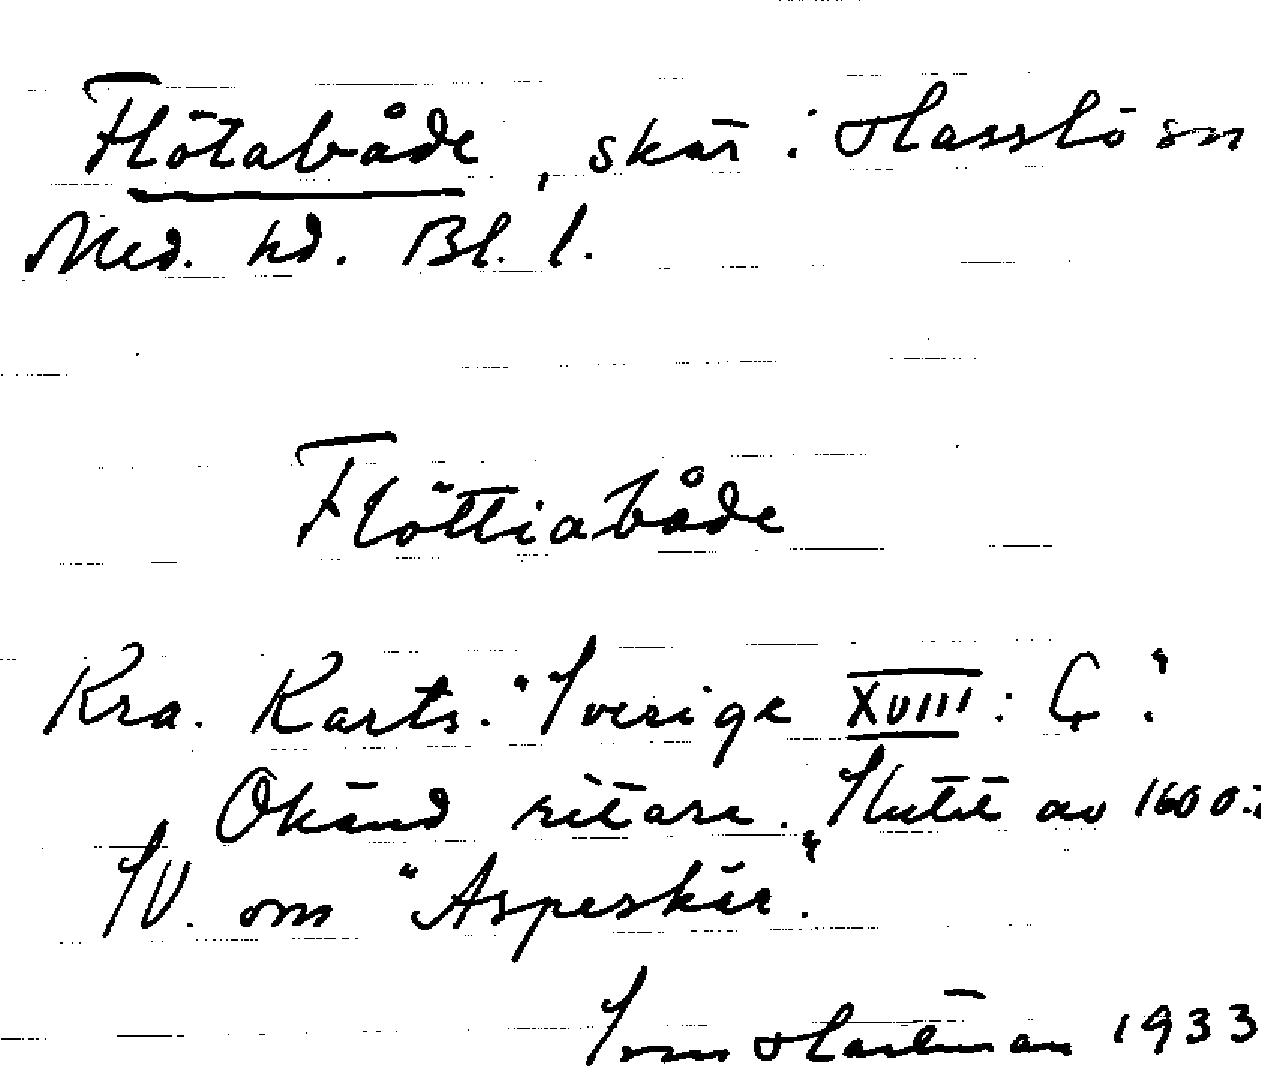 Flötabåde, skär i Hasslö sn
Med. hd. Bl. l.
Flöttiabåde
Kra. Karts. "Sverige XVIII: C".
Okänd ritare. Slutet av 1600:
SV. om "Aspeskär".
Hartman 1933